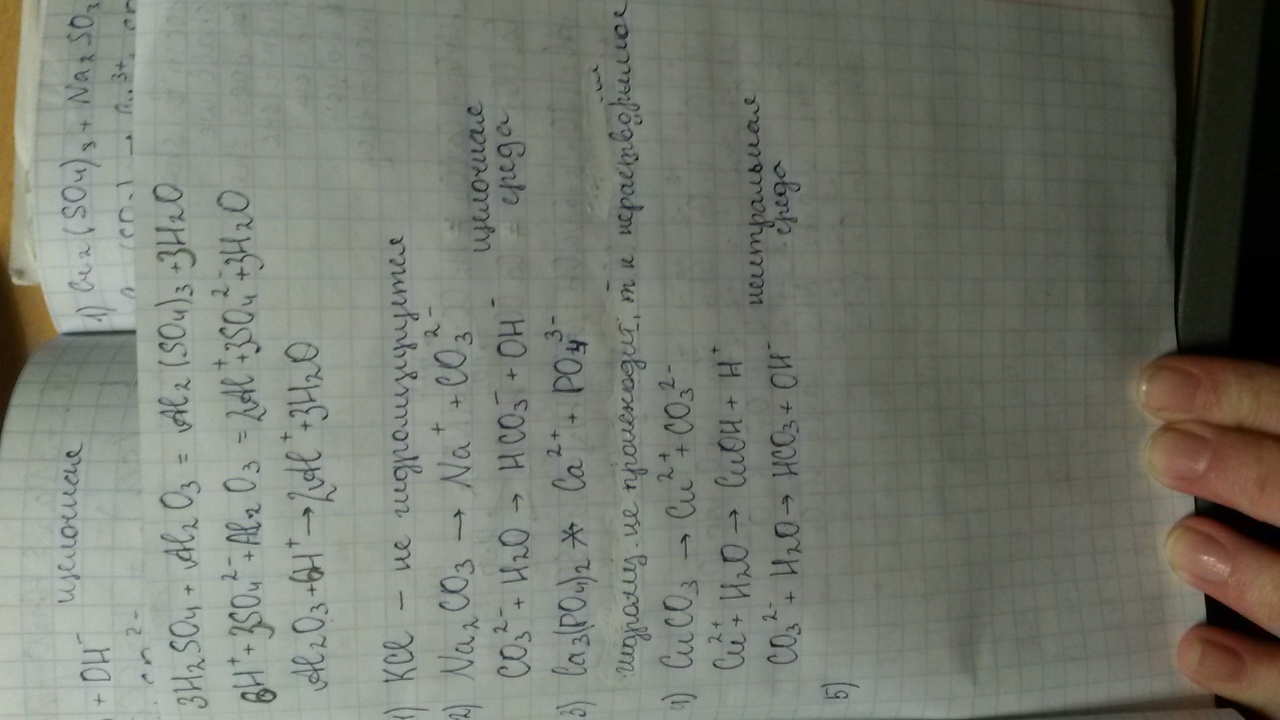 + OH⁻ щелочная
3H₂SO₄ + Al₂O₃ = Al₂(SO₄)₃ + 3H₂O
6H⁺ + 3SO₄²⁻ + Al₂O₃ = 2Al⁺ + 3SO₄²⁻ + 3H₂O
Al₂O₃ + 6H⁺ → 2Al⁺ + 3H₂O
1) KCl – не гидролизируется
2) Na₂CO₃ → Na⁺ + CO₃²⁻
CO₃²⁻ + H₂O → HCO₃⁻ + OH⁻ щелочная среда
3) Ca₃(PO₄)₂ Ca²⁺ + PO₄³⁻
гидролиз не происходит, т к нерастворимое
4) CuCO₃ → Cu²⁺ + CO₃²⁻
Cu²⁺ + H₂O → CuOH + H⁺ нейтральная
CO₃²⁻ + H₂O → HCO₃ + OH⁻ среда
5)
1) Cr₂(SO₄)₃ + Na₂SO₃